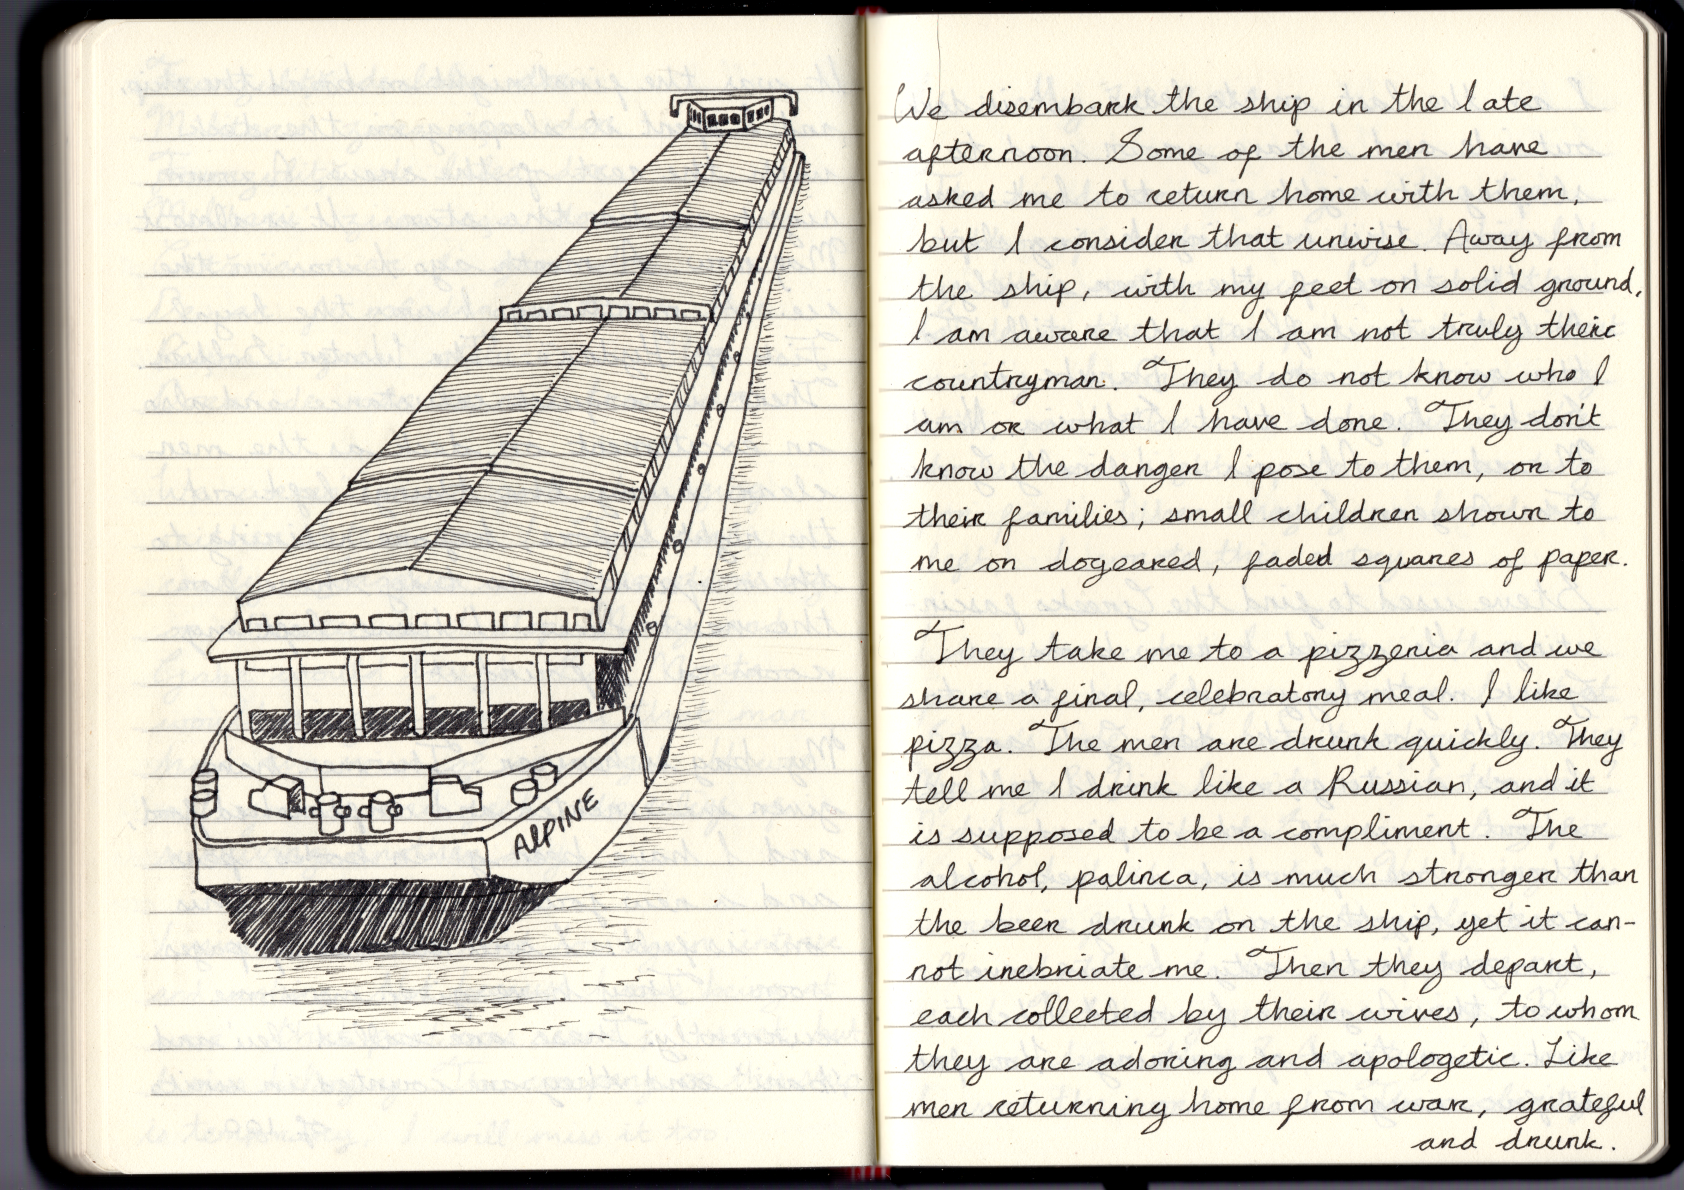 ALPINE
We disembark the ship in the late
afternoon. Some of the men have
asked me to return home with them,
but I consider that unwise. Away from
the ship, with my feet on solid ground,
I am aware that I am not truly their
countryman. They do not know who I
am or what I have done. They don't
know the danger I pose to them, or to
their families; small children shown to
me on dogeared, faded squares of paper.
They take me to a pizzeria and we
share a final, celebratory meal. I like
pizza. The men are drunk quickly. They
tell me I drink like a Russian, and it
is supposed to be a compliment. The
alcohol, palinca, is much stronger than
the beer drunk on the ship, yet it can-
not inebriate me. Then they depart,
each collected by their wives, to whom
they are adoring and apologetic. Like
men returning home from war, grateful
and drunk.